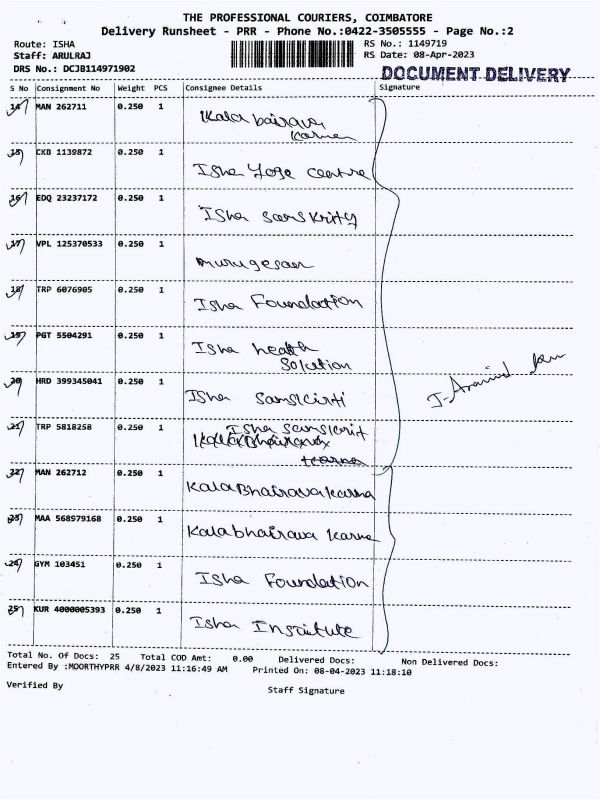 THE PROFESSIONAL COURIERS, COIMBATORE
Delivery Runsheet - PRR - Phone No.:0422-3505555 - Page No.:2
Route: ISHA RS No.: 1149719
Staff: ARULRAJ RS Date: 08-Apr-2023
DRS No.: DCJB114971902 DOCUMENT DELIVERY
S No Consignment No Weight PCS Consignee Details Signature
14 MAN 262711 0.250 1 Kala bairava
Karna
15 CKB 1139872 0.250 1 Isha Yoga centre
16 EDQ 23237172 0.250 1 Isha Sanskrity
17 VPL 125370533 0.250 1 Murugesan
18 TRP 6076905 0.250 1 Isha Foundation
19 PGT 5504291 0.250 1 Isha health
Solution
20 HRD 399345041 0.250 1 Isha Sanskirti
J. Aravind
21 TRP 5818258 0.250 1 Isha Sanskrit
22 MAN 262712 0.250 1 Kala Bhairava Karna
23 MAA 568979168 0.250 1 Kalabhairava Karna
24 GYM 103451 0.250 1 Isha Foundation
25 KUR 4000005393 0.250 1 Isha Institute
Total No. Of Docs: 25 Total COD Amt: 0.00 Delivered Docs: Non Delivered Docs:
Entered By :MOORTHYPRR 4/8/2023 11:16:49 AM Printed On: 08-04-2023 11:18:10
Verified By Staff Signature